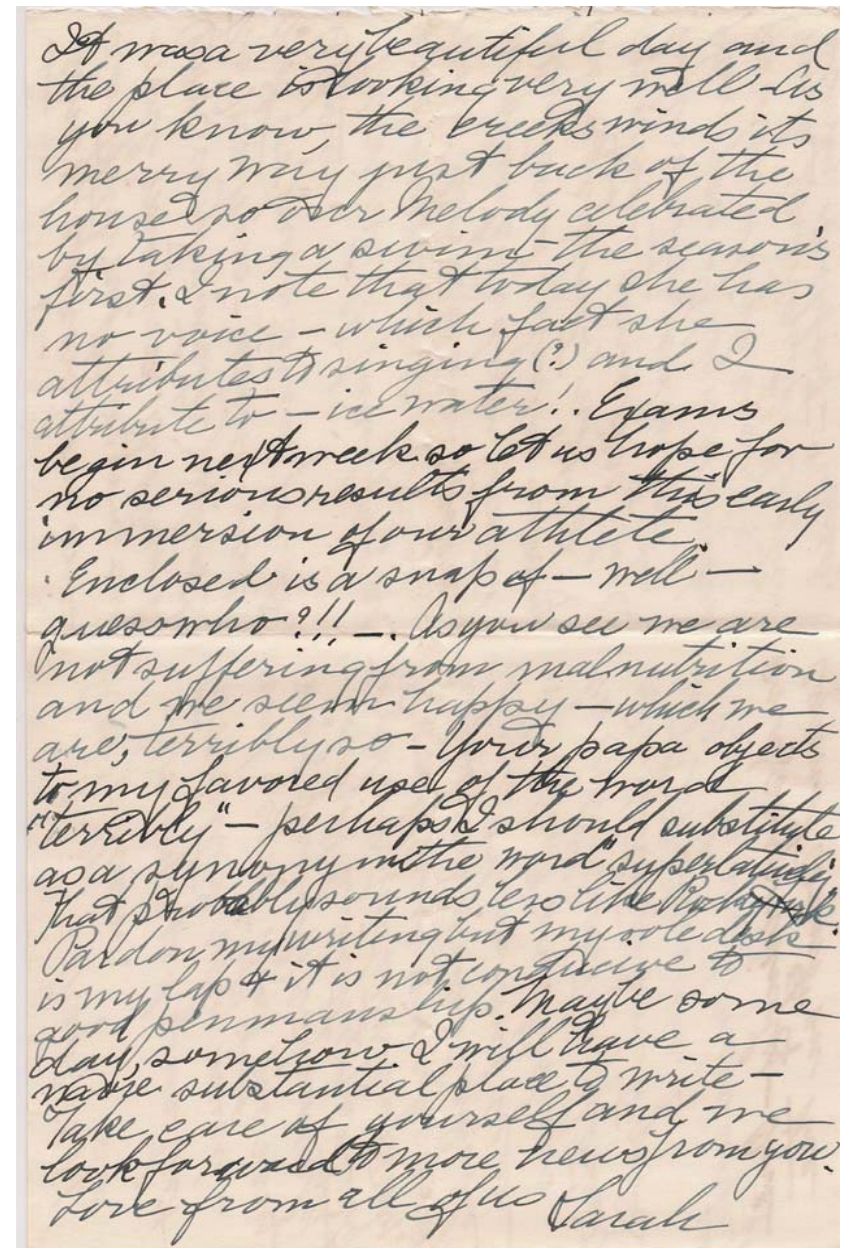 It was a very beautiful day and
the place is looking very well - As
you know, the creek winds its
merry way just back of the
house so our Melody celebrated
by taking a swim - the season's
first. I note that today she has
no voice - which fact she
attributes to singing (?) and I
attribute to - ice water!. Exams
begin next week so let us hope for
no serious results from this early
immersion of our athlete.
Enclosed is a snap of - well -
guess who?!! -. As you see we are
not suffering from malnutrition
and we seem happy - which we
are, terribly so - Your papa objects
to my favored use of the word
"terribly" - perhaps I should substitute
as a synonym the word "superlatively"
That probably sounds less like
Pardon my writing but my sole desk
is my lap & it is not conducive to
good penmanship. Maybe some
day, somehow I will have a
more substantial place to write -
Take care of yourself and we
look forward to more news from you.
Love from all of us Sarah